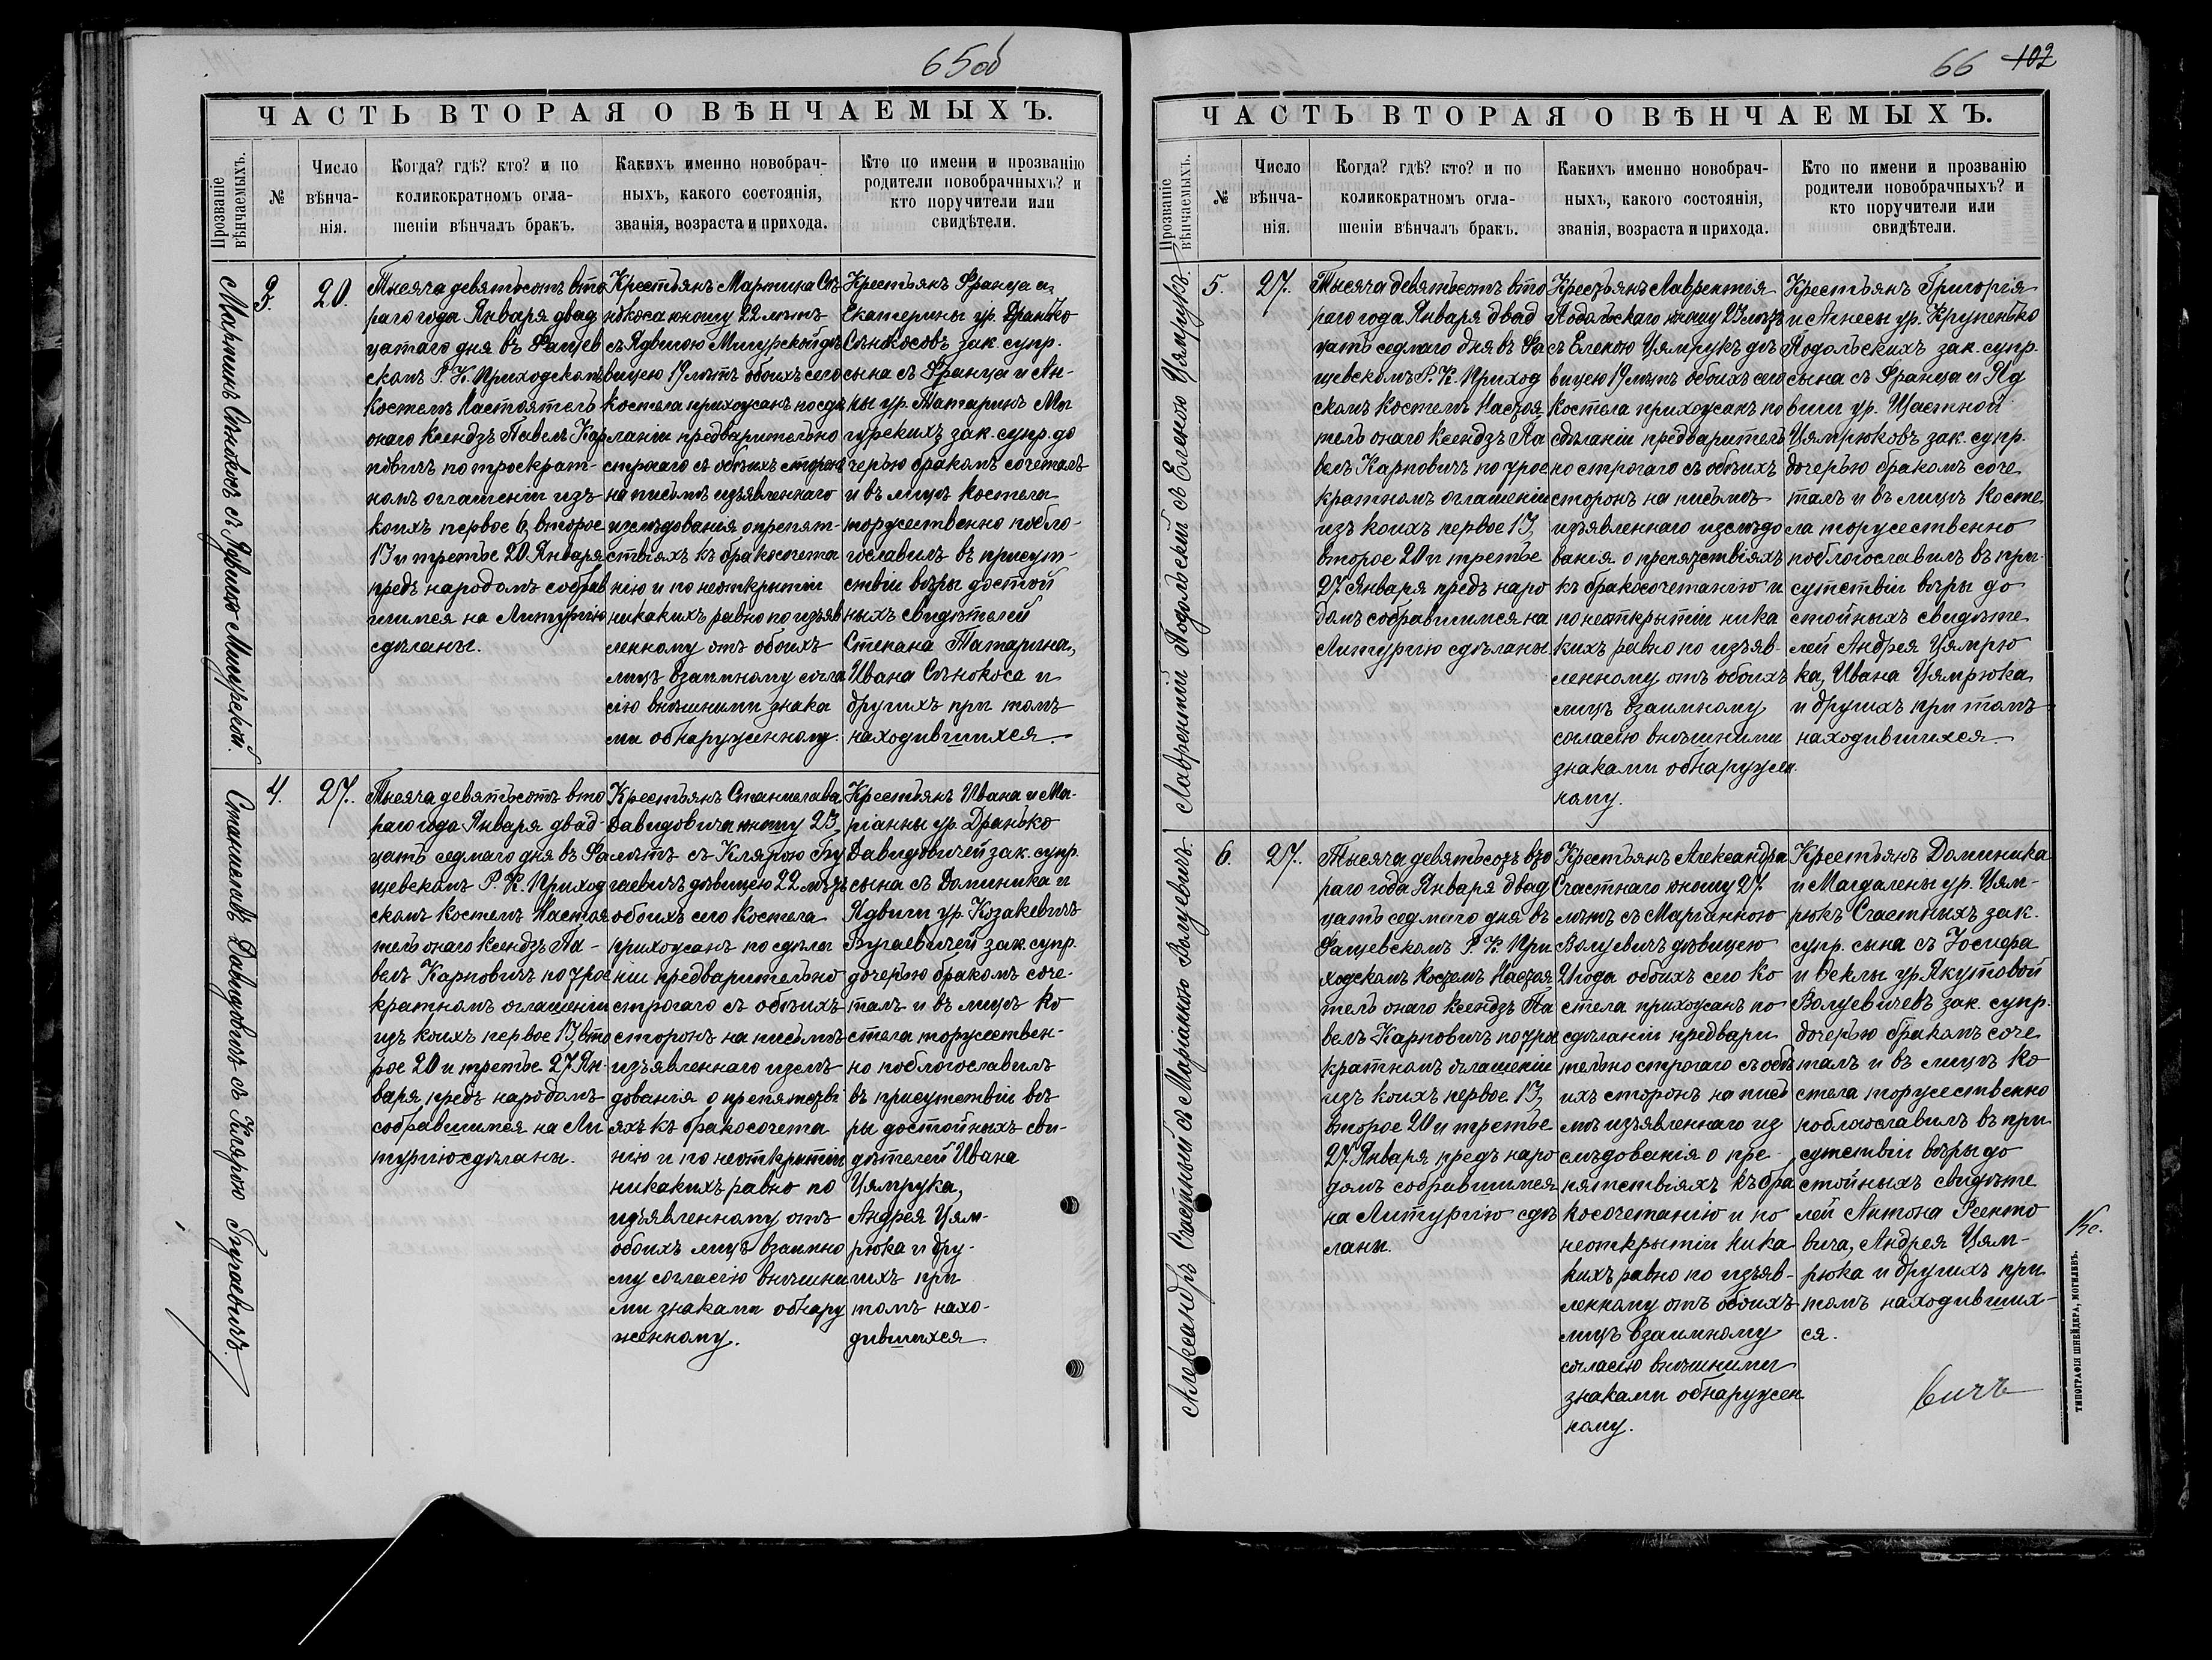 65об
ЧАСТЬ ВТОРАЯ О ВѢНЧАЕМЫХЪ.
Прозваніе вѣнчаемыхъ.
№
Число вѣнчанія.
Когда? гдѣ? кто? и по
коликократномъ огла-
шеніи вѣнчалъ бракъ.
Какихъ именно новобрач-
ныхъ, какого состоянія,
званія, возраста и прихода.
Кто по имени и прозванію
родители новобрачныхъ? и
кто поручители или
свидѣтели.
Мартинъ Сѣнокосъ съ Ядвигою Мигурской.
3.
20.
Тысяча девятьсотъ вто
раго года Января двад
цатаго дня въ Фащев
скомъ Р. К. Приходскомъ
костелѣ Настоятель
онаго Ксендзъ Павелъ Кар
повичъ по троекрат-
номъ оглашеніи изъ
коихъ первое 6, второе
13 и третье 20 Января
предъ народомъ собрав
шимся на Литургію
сдѣланы.
Крестьянъ Мартина Сѣ
нокоса юношу 22 лѣтъ
съ Ядвигою Мигурской дѣ
вицею 19 лѣтъ обоихъ сего
костела прихожанъ по сдѣ
ланіи предварительно
строгаго съ обѣихъ сторонъ
на письмѣ изъявленнаго
изслѣдованія о препят-
ствіяхъ къ бракосочета
нію и по неоткрытіи
никакихъ равно по изъяв
ленному отъ обоихъ
лицъ взаимному согла
сію внѣшними знака
ми обнаруженному.
Крестьянъ Франца и
Екатерины ур. Дранько
Сѣнокосовъ зак. супр.
сына съ Франца и Ан-
ны ур. Татаринъ Ми
гурскихъ зак. супр. до
черью бракомъ сочеталъ
и въ лицѣ костела
торжественно побло-
гославилъ въ присут-
ствіи вѣры достой
ныхъ свидѣтелей
Степана Татарина,
Ивана Сѣнокоса и
другихъ при томъ
находившихся.
Станиславъ Давидовичъ съ Клярою Бугаевичъ.
4.
27.
Тысяча девятьсотъ вто
раго года Января двад-
цать седмаго дня въ Фа
щевскомъ Р. К. Приход
скомъ костелѣ Настоя
тель онаго Ксендзъ Па-
велъ Карповичъ по трое
кратномъ оглашеніи
изъ коихъ первое 13, вто
рое 20 и третье 27 Ян-
варя предъ народомъ
собравшимся на Ли
тургію сдѣланы.
Крестьянъ Станислава
Давидовича юношу 23
лѣтъ съ Клярою Бу
гаевичъ дѣвицею 22 лѣтъ
обоихъ сего костела
прихожанъ по сдѣла
ніи предварительно
строгаго съ обѣихъ
сторонъ на письмѣ
изъявленнаго изслѣ
дованія о препятстві
яхъ къ бракосочета
нію и по неоткрытіи
никакихъ равно по
изъявленному отъ
обоихъ лицъ взаимно
му согласію внѣшни
ми знаками обнару
женному.
Крестьянъ Ивана и Ма-
ріанны ур. Дранько
Давидовичей зак. супр.
сына съ Доминика и
Ядвиги ур. Козакевичъ
Бугаевичей зак. супр.
дочерью бракомъ соче-
талъ и въ лицѣ ко
стела торжествен-
но поблогославилъ
въ присутствіи вѣ
ры достойныхъ сви-
дѣтелей Ивана
Цямрука,
Андрея Цям-
рюка и дру-
гихъ при
томъ нахо-
дившихся.
66 102
ЧАСТЬ ВТОРАЯ О ВѢНЧАЕМЫХЪ.
Прозваніе вѣнчаемыхъ.
№
Число вѣнчанія.
Когда? гдѣ? кто? и по
коликократномъ огла-
шеніи вѣнчалъ бракъ.
Какихъ именно новобрач-
ныхъ, какого состоянія,
званія, возраста и прихода.
Кто по имени и прозванію
родители новобрачныхъ? и
кто поручители или
свидѣтели.
Лаврентій Подольскій съ Еленою Цямрукъ.
5.
27.
Тысяча девятьсотъ вто
раго года Января двад
цать седмаго дня въ Фа
щевскомъ Р. К. Приход
скомъ костелѣ Настоя
тель онаго Ксендзъ Па
велъ Карповичъ по трое
кратномъ оглашеніи
изъ коихъ первое 13,
второе 20 и третье
27 Января предъ наро
домъ собравшимся на
Литургію сдѣланы
Крестьянъ Лаврентія
Подольскаго юношу 23 лѣтъ
съ Еленою Цямрукъ дѣ
вицею 19 лѣтъ обоихъ сего
костела прихожанъ по
сдѣланіи предваритель
но строгаго съ обѣихъ
сторонъ на письмѣ
изъявленнаго изслѣдо
ванія о препятствіяхъ
къ бракосочетанію и
по неоткрытіи ника
кихъ равно по изъяв-
ленному отъ обоихъ
лицъ взаимному
согласію внѣшними
знаками обнаружен
ному.
Крестьянъ Григорія
и Агнесы ур. Крупенько
Подольскихъ зак. супр.
сына съ Франца и Яд
виги ур. Щастной
Цямрюковъ зак. супр.
дочерью бракомъ соче
талъ и въ лицѣ косте
ла торжественно
поблогославилъ въ при-
сутствіи вѣры до
стойныхъ свидѣте
лей Андрея Цямрю
ка, Ивана Цямрюка
и другихъ при томъ
находившихся.
Александръ Счастный съ Маріанною Волуевичъ.
6.
27.
Тысяча девятьсотъ вто
раго года Января двад
цать седмаго дня въ
Фащевскомъ Р. К. При
ходскомъ костелѣ Настоя
тель онаго Ксендзъ Па
велъ Карповичъ по трое
кратномъ оглашеніи
изъ коихъ первое 13,
второе 20 и третье
27 Января предъ наро
домъ собравшимся
на Литургію сдѣ
ланы.
Крестьянъ Александра
Счастнаго юношу 27
лѣтъ съ Маріанною
Волуевичъ дѣвицею
21 года обоихъ сего ко
стела прихожанъ по
сдѣланіи предвари
тельно строгаго съ обѣ
ихъ сторонъ на пись
мѣ изъявленнаго из
слѣдованія о пре-
пятствіяхъ къ бра
косочетанію и по
неоткрытіи ника
кихъ равно по изъяв-
ленному отъ обоихъ
лицъ взаимному
согласію внѣшними
знаками обнаружен
ному.
Крестьянъ Доминика
и Магдалены ур. Цям-
рюкъ Счастныхъ зак.
супр. сына съ Іосифа
и Феклы ур. Якутовой
Волуевичевъ зак. супр.
дочерью бракомъ соче
талъ и въ лицѣ ко
стела торжественно
поблогославилъ въ при
сутствіи вѣры до
стойныхъ свидѣте
лей Антона Рсенто
вича, Андрея Цям-
рюка и другихъ при
томъ находивших-
ся.
вичъ
Кс.
ТИПОГРАФІЯ ШНЕЙДЕРА, МОГИЛЕВЪ.